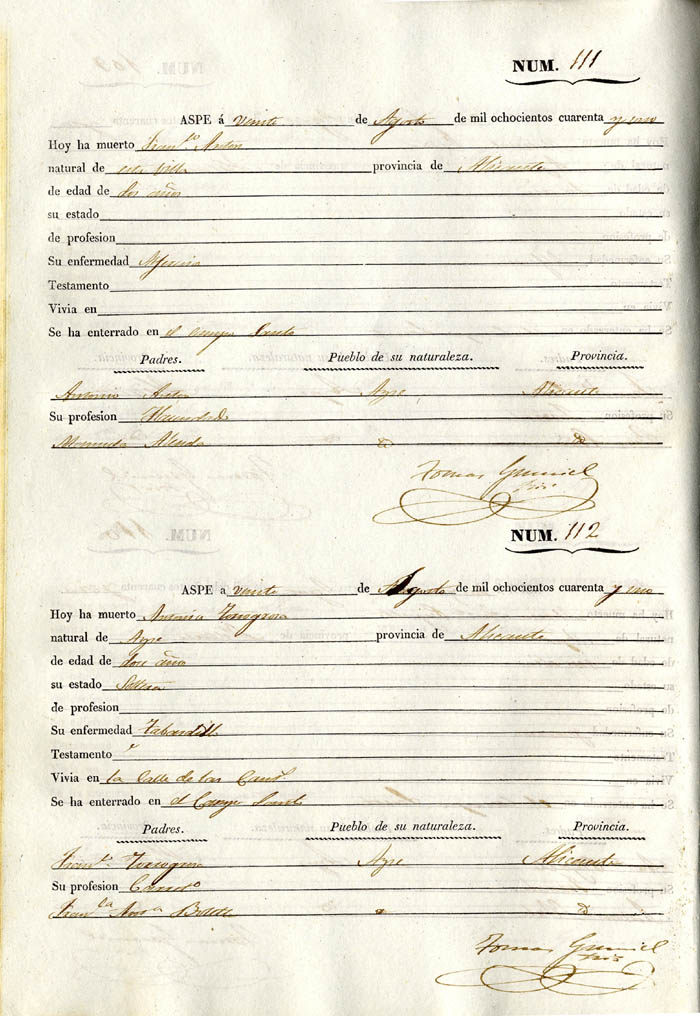 NUM. 111
ASPE á veinte de Agosto de mil ochocientos cuarenta y uno
Hoy ha muerto Fran.co Anton
natural de esta Villa provincia de Alicante
de edad de dos años
su estado
de profesion
Su enfermedad
Testamento
Vivia en
Se ha enterrado en el Campo Santo
Padres. Pueblo de su naturaleza. Provincia.
Antonio Anton Aspe Alicante
Su profesion Hacendado
Alenda
Tomas
NUM. 112
ASPE a veinte de Agosto de mil ochocientos cuarenta y uno
Hoy ha muerto Torregrosa
natural de Aspe provincia de Alicante
de edad de doce años
su estado Soltera
de profesion
Su enfermedad Tabardillo
Testamento
Vivia en la Calle de las
Se ha enterrado en el Campo Santo
Padres. Pueblo de su naturaleza. Provincia.
Fran.co Torregrosa Aspe Alicante
Su profesion
Fran.ca Botella
Tomas